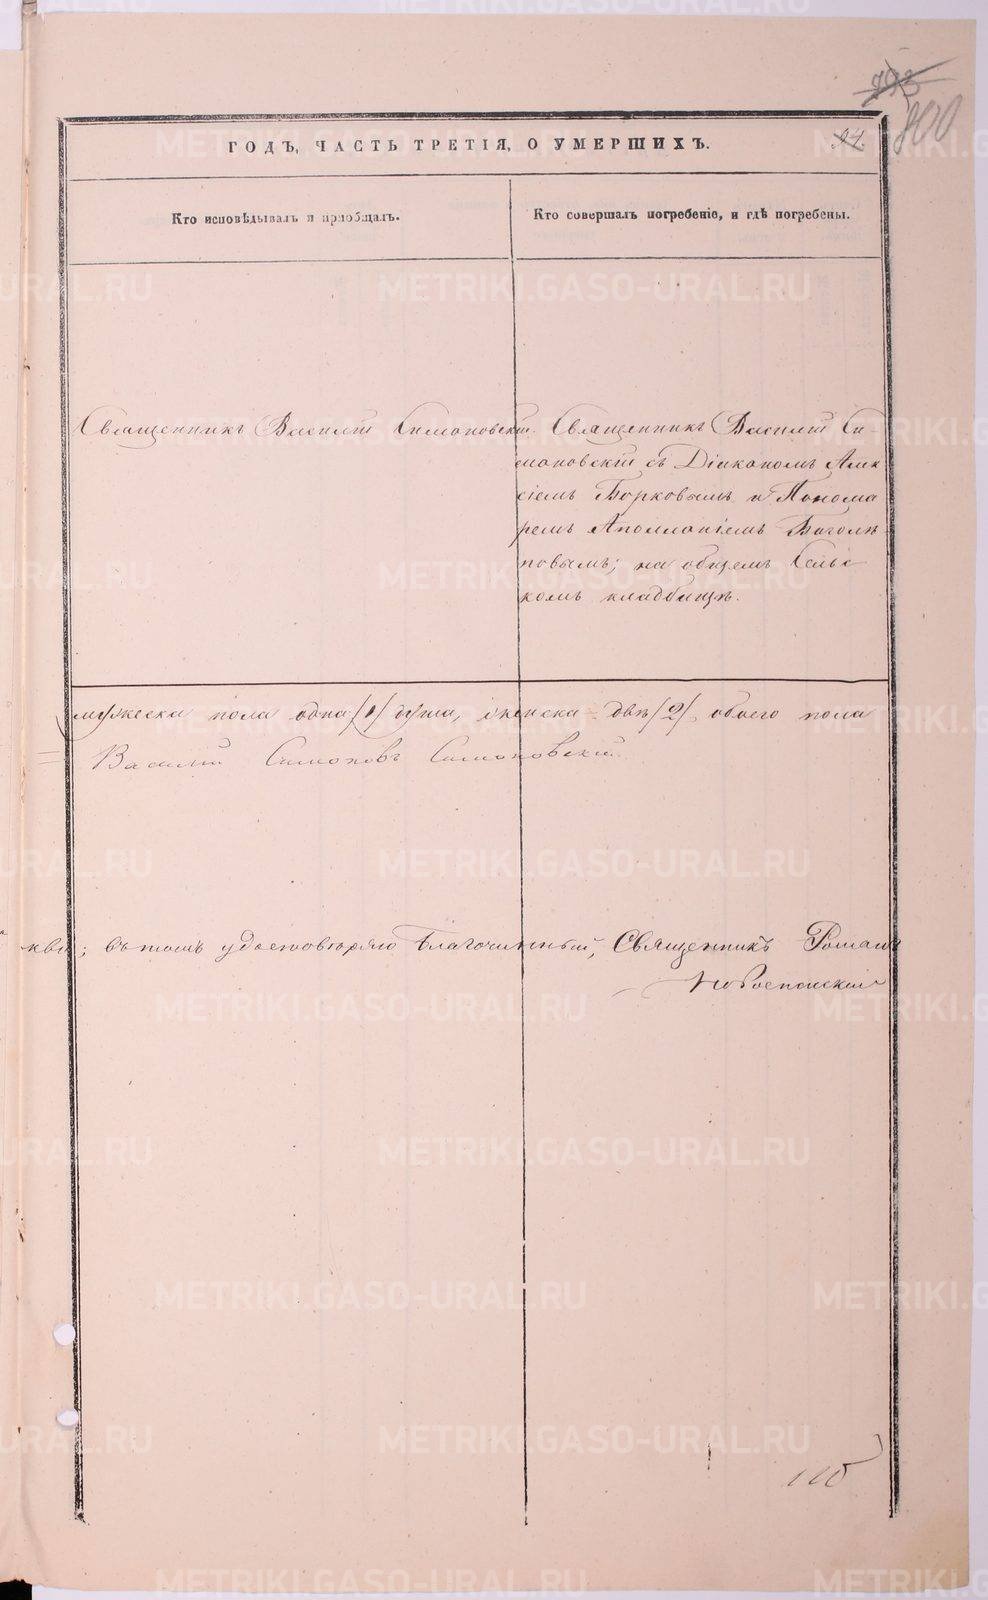 793
800
ГОДЪ, ЧАСТЬ ТРЕТІЯ, О УМЕРШИХЪ.
94.
Кто исповѣдывалъ и приобщалъ.
Кто совершалъ погребеніе, и гдѣ погребены.
Священникъ Василій Симановскій.
Священникъ Василій Си-
мановскій съ Діакономъ Алек
сіемъ Борковымъ и Понома
ремъ Аполлоніемъ Боголѣ
повымъ; на общемъ Сельс
комъ кладбищѣ.
мужеска пола одна /1/ душа, женска двѣ /2/ обоего пола
Василій Симоновъ Симановскій.
кви; въ томъ удостовѣряю Благочинный, Священникъ Романъ
METRIKI.GASO-URAL.RU